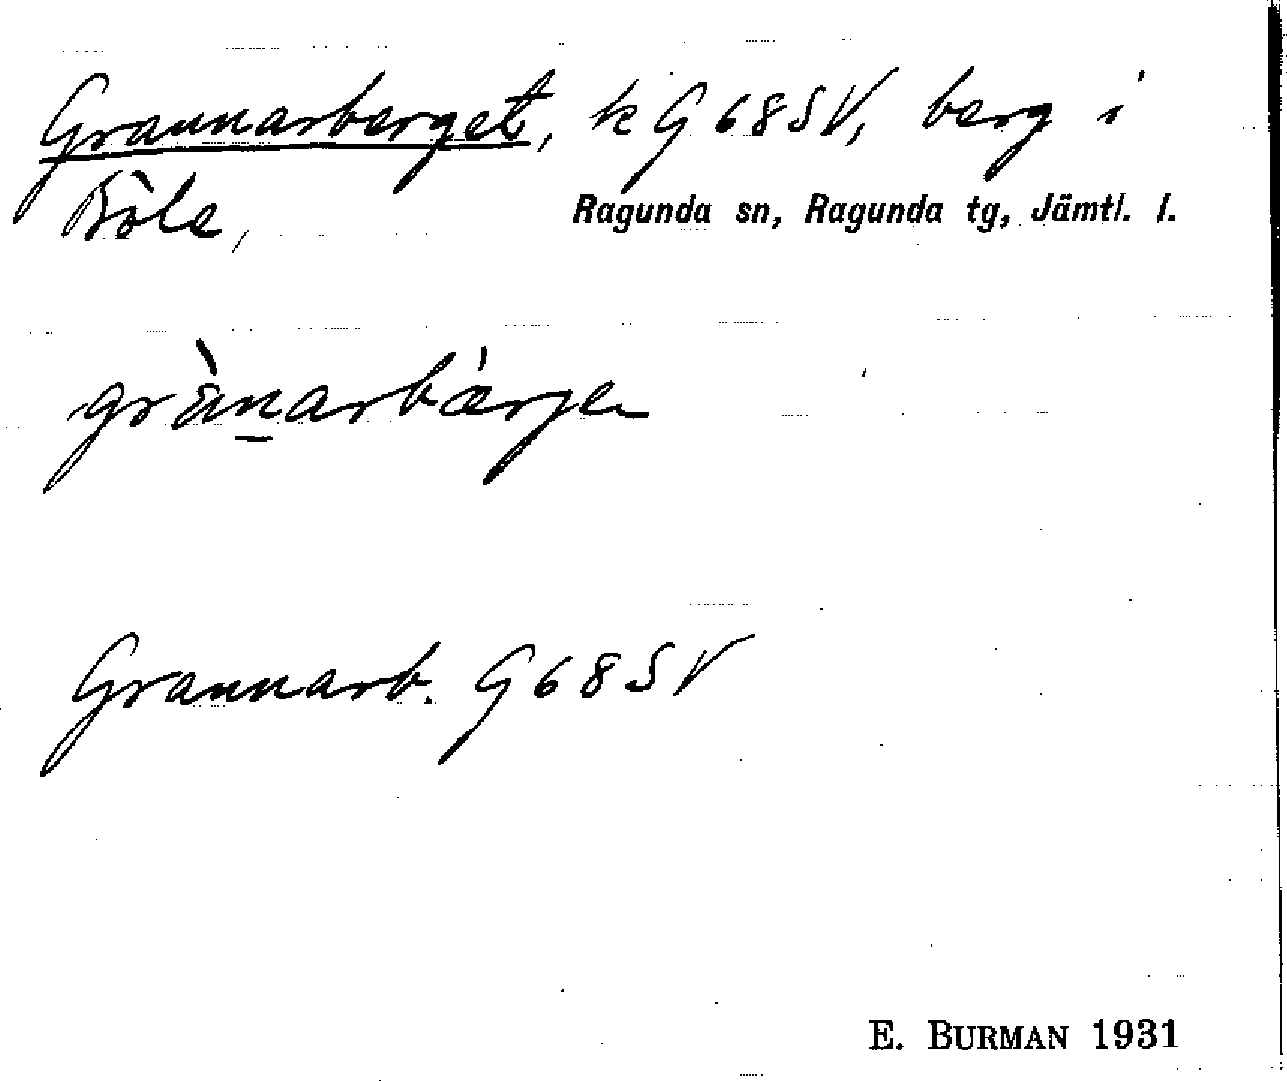 Grannarberget, k G68SV, berg i
Böle, Ragunda sn, Ragunda tg, Jämtl. l.
grànarbárjen
Grannarb. G68SV
E. BURMAN 1931